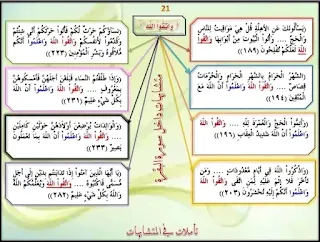 21
وَاتَّقُوا اللَّهَ
متشابهات داخل سورة البقرة
(يَسْأَلُونَكَ عَنِ الأَهِلَّةِ قُلْ هِيَ مَوَاقِيتُ لِلنَّاسِ
وَالْحَجِّ ...... وَأْتُواْ الْبُيُوتَ مِنْ أَبْوَابِهَا وَاتَّقُواْ
اللّهَ لَعَلَّكُمْ تُفْلِحُونَ (١٨٩))
(الشَّهْرُ الْحَرَامُ بِالشَّهْرِ الْحَرَامِ وَالْحُرُمَاتُ
قِصَاصٌ ... وَاتَّقُواْ اللّهَ وَاعْلَمُواْ أَنَّ اللّهَ مَعَ
الْمُتَّقِينَ (١٩٤))
(وَأَتِمُّواْ الْحَجَّ وَالْعُمْرَةَ لِلّهِ ..... وَاتَّقُواْ اللّهَ
وَاعْلَمُواْ أَنَّ اللّهَ شَدِيدُ الْعِقَابِ (١٩٦))
(وَاذْكُرُواْ اللّهَ فِي أَيَّامٍ مَّعْدُودَاتٍ ..... وَمَن
تَأَخَّرَ فَلا إِثْمَ عَلَيْهِ لِمَنِ اتَّقَى وَاتَّقُواْ اللّهَ
وَاعْلَمُواْ أَنَّكُمْ إِلَيْهِ تُحْشَرُونَ (٢٠٣))
(نِسَاؤُكُمْ حَرْثٌ لَّكُمْ فَأْتُواْ حَرْثَكُمْ أَنَّى شِئْتُمْ
وَقَدِّمُواْ لأَنفُسِكُمْ وَاتَّقُواْ اللّهَ وَاعْلَمُواْ أَنَّكُم
مُّلاَقُوهُ وَبَشِّرِ الْمُؤْمِنِينَ (٢٢٣))
(وَإِذَا طَلَّقْتُمُ النِّسَاء فَبَلَغْنَ أَجَلَهُنَّ فَأَمْسِكُوهُنَّ
بِمَعْرُوفٍ .... وَاتَّقُواْ اللّهَ وَاعْلَمُواْ أَنَّ اللّهَ
بِكُلِّ شَيْءٍ عَلِيمٌ (٢٣١))
(وَالْوَالِدَاتُ يُرْضِعْنَ أَوْلاَدَهُنَّ حَوْلَيْنِ كَامِلَيْنِ
.... وَاتَّقُواْ اللّهَ وَاعْلَمُواْ أَنَّ اللّهَ بِمَا تَعْمَلُونَ
بَصِيرٌ (٢٣٣))
(يَا أَيُّهَا الَّذِينَ آمَنُواْ إِذَا تَدَايَنتُم بِدَيْنٍ إِلَى أَجَلٍ
مُّسَمًّى فَاكْتُبُوهُ .... وَاتَّقُواْ اللّهَ وَيُعَلِّمُكُمُ اللّهُ
وَاللّهُ بِكُلِّ شَيْءٍ عَلِيمٌ (٢٨٢))
تأملات في المتشابهات